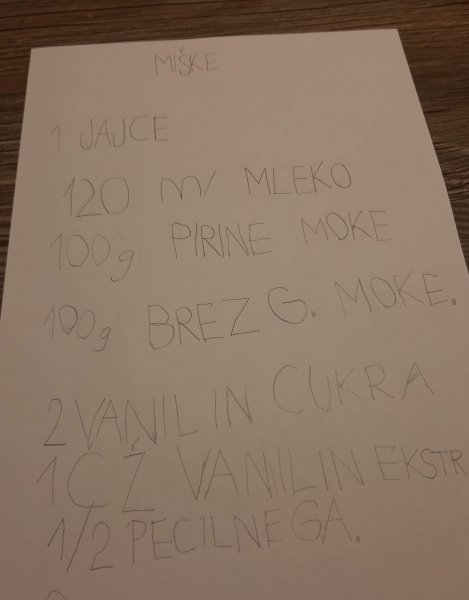 MIŠKE
1 JAJCE
120 ml MLEKO
100g PIRINE MOKE
100g BREZ G. MOKE.
2 VANILIN CUKRA
1 ČŽ VANILIN EKSTR
1/2 PECILNEGA.